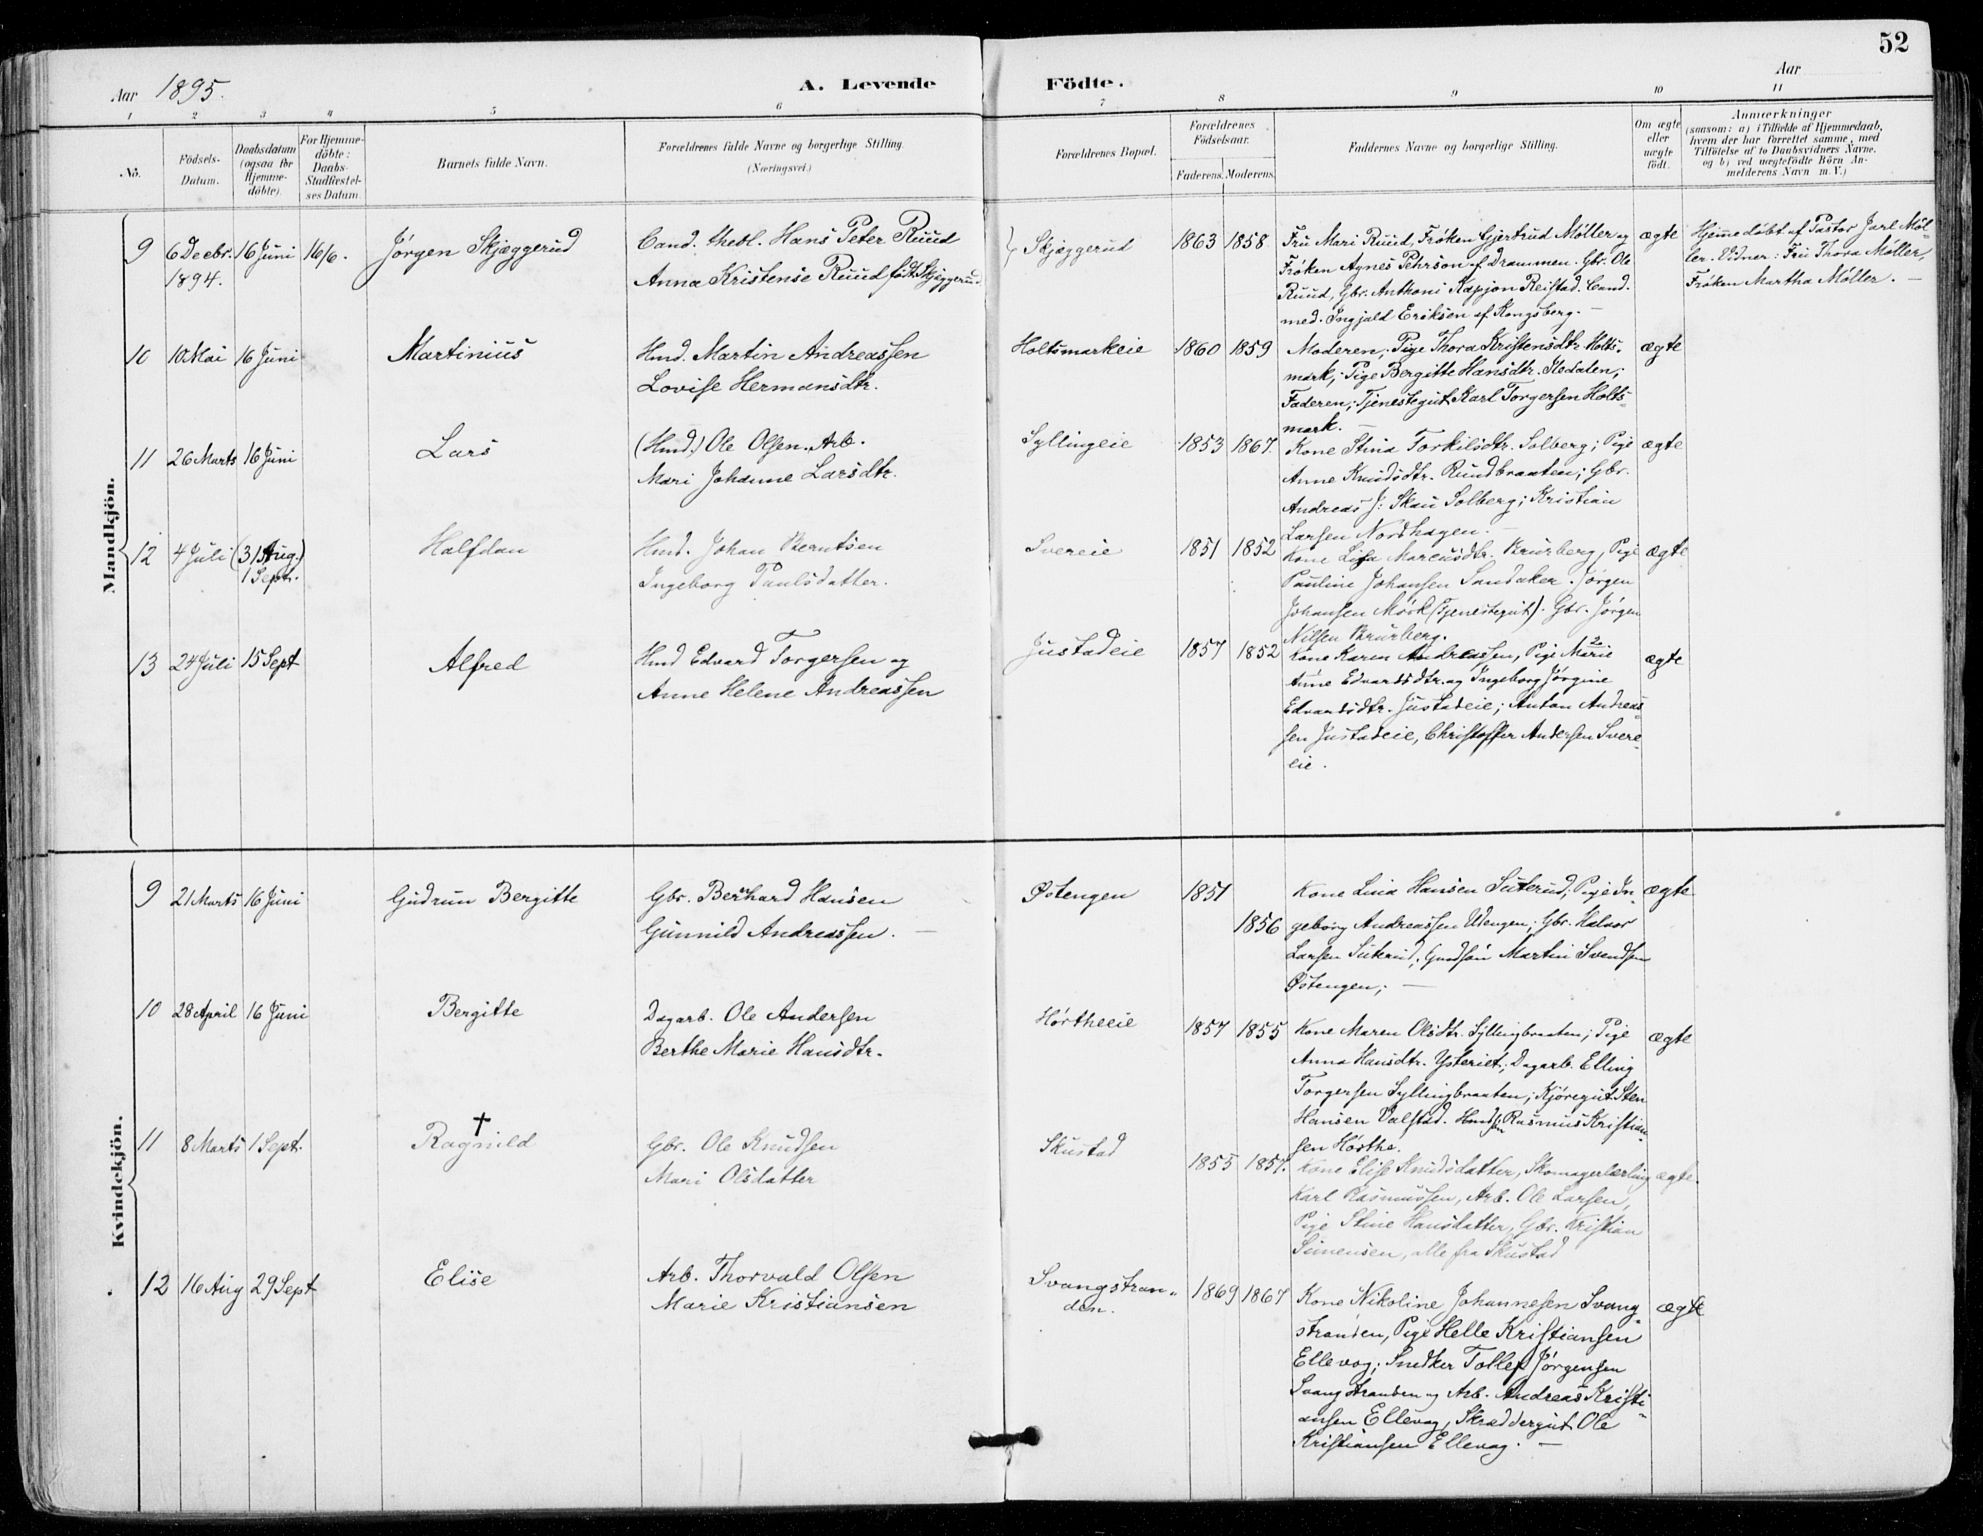 52
Aar 1895.
A. Levende
Födte.
Aar
1 2 3 4 5 6 7 8 9 10 11
No.
Födsels-
Datum.
Daabsdatum
(ogsaa for
Hjemme-
döbte).
For Hjemme-
döbte:
Daabs-
Stadfæstel-
ses Datum.
Barnets fulde Navn.
Forældrenes fulde Navne og borgerlige Stilling.
(Næringsvei.)
Forældrenes Bopæl.
Forældrenes
Födselsaar.
Faderens. Moderens.
Faddernes Navne og borgerlige Stilling.
Om ægte
eller
uægte
födt.
Anmærkninger
(saasom: a) i Tilfælde af Hjemmedaab,
hvem der har forrettet samme, med
Tilföielse af to Daabsvidners Navne.
og b) ved uægtefödte Börn An-
melderens Navn m. V.)
Mandkjön.
9 6 Decbr. 16 Juni 16/6. Jørgen Skjæggerud
1894.
Cand. theol. Hans Peter Ruud
Anna Kristense Ruud født Skjæggerud
Skjæggerud 1863 1858
Fru Mari Ruud, Frøken Gjertrud Møller og
Frøken Agnes Pehrson af Drammen. Gbr. Ole
Ruud, Gbr. Anthoni Kapjon Reistad. Cand.
med. Ingjald Eriksen af Kongsberg. —
ægte
Hjemmedøbt af Pastor Jarl Møl-
ler. Vidner: Fru Thora Møller,
Frøken Martha Møller. —
10 10 Mai 16 Juni Martinius
Hmd. Martin Andreassen
Lovise Hermansdtr.
Holtsmarkeie 1860 1859
Moderen; Pige Thora Kristensdtr. Holts-
mark; Pige Bergitte Hansdtr. Hedalen;
Faderen; Tjenestegut Karl Torgersen Holts-
mark. —
ægte
11 26 Marts 16 Juni Lars
(Hmd.) Ole Olsen, Arb.
Mari Johanne Larsdtr.
Syllingeie 1853 1867.
Kone Stina Torkilsdtr. Solberg; Pige
Anne Knudsdtr. Rundbraaten; Gbr.
Andreas J: Skau Solberg; Kristian
Larsen Nordhagen. —
ægte
12 4 Juli (31 Aug.) Halfdan
1 Sept.
Hmd. Johan Berntsen
Ingeborg Paulsdatter.
Svereie 1851 1852
Kone Lisa Marcusdtr. Brurberg, Pige
Pauline Johansen Sandaker. Jørgen
Johansen Mørk (Tjenestegut). Gbr. Jørgen
Nilsen Brurberg.
ægte
13 24 Juli 15 Sept Alfred
Hmd Edvard Torgersen og
Anne Helene Andreassen
Justadeie 1857 1852
Kone Karen Andreassen, Pige Marie
Anne Edvardsdtr. og Ingeborg Jørgine
Edvardsdtr. Justadeie; Anton Andreas-
sen Justadeie, Christoffer Andersen Svere-
eie.
ægte
Kvindekjön.
9 21 Marts 16 Juni Gudrun Bergitte
Gbr. Bernhard Hansen
Gunnild Andreassen. —
Østengen 1851
1856
Kone Lina Hansen Suterud; Pige In-
geborg Andreassen Udengen; Gbr. Halvor
Larsen Suterud; Martin Svendsen
Østengen; —
ægte
10 28 April 16 Juni Bergitte
Dagarb. Ole Andersen
Berthe Marie Hansdtr.
Hørtheeie 1857 1855
Kone Maren Olsdtr. Syllingbraaten; Pige
Anna Hansdtr. Ysteriet; Dagarb. Elling
Torgersen Syllingbraaten; Kjøregut Sten
Hansen Valstad. Rasmus Kristian-
sen Hørthe.
ægte
11 8 Marts 1 Sept. Ragnild †
Gbr. Ole Knudsen
Mari Olsdatter
Skustad 1855 1857.
Kone Elise Knudsdatter, Skomagerlærling
Karl Rasmussen, Arb. Ole Larsen,
Pige Stine Hansdatter, Gbr. Kristian
Simensen, alle fra Skustad
ægte.
12 16 Aug 29 Sept Elise
Arb. Thorvald Olsen
Marie Kristiansen
Svangstran-
den.
1869 1867
Kone Nikoline Johannesen Svang-
stranden, Pige Helle Kristiansen
Ellevog; Snedker Tollef Jørgensen
Svangstranden og Arb. Andreas Kristi-
ansen Ellevog, Skræddergut Ole
Kristiansen Ellevog. —
ægte